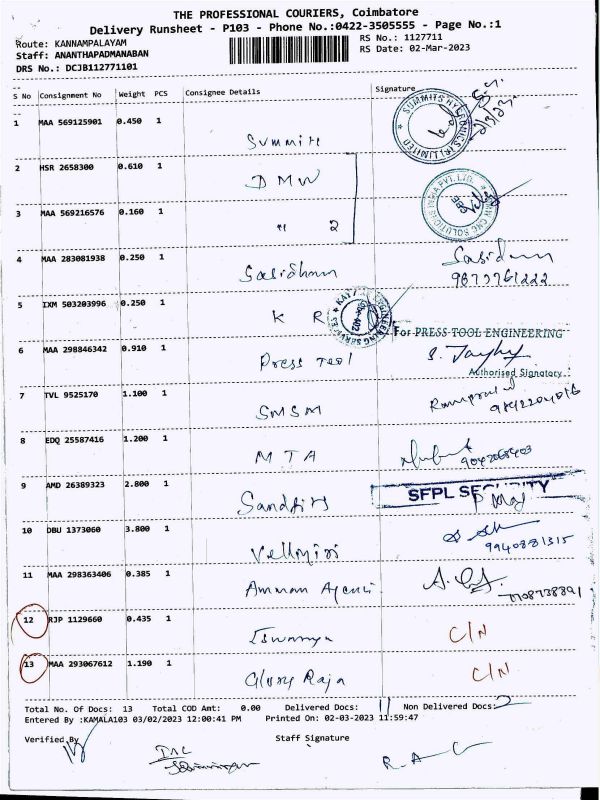 THE PROFESSIONAL COURIERS, Coimbatore
Delivery Runsheet - P103 - Phone No.:0422-3505555 - Page No.:1
Route: KANNAMPALAYAM RS No.: 1127711
Staff: ANANTHAPADMANABAN RS Date: 02-Mar-2023
DRS No.: DCJB112771101
S No Consignment No Weight PCS Consignee Details Signature
1 MAA 569125901 0.450 1 Summits
2 HSR 2658300 0.610 1 DMW
3 MAA 569216576 0.160 1 " 2
4 MAA 283081938 0.250 1 Sasidharn
5 IXM 503203996 0.250 1 K R
For PRESS TOOL ENGINEERING
6 MAA 298846342 0.910 1 Press Tool
Authorised Signatory
7 TVL 9525170 1.100 1 SMSM
8 EDQ 25587416 1.200 1 MTA 9042068403
9 AMD 26389323 2.800 1 Sandfits SFPL SECURITY
10 DBU 1373060 3.800 1 9940881315
11 MAA 298363406 0.385 1 Amman 7708738891
12 RJP 1129660 0.435 1 Iswarya C/N
13 MAA 293067612 1.190 1 Glory Raja C/N
Total No. Of Docs: 13 Total COD Amt: 0.00 Delivered Docs: 11 Non Delivered Docs: 2
Entered By :KAMALA103 03/02/2023 12:00:41 PM Printed On: 02-03-2023 11:59:47
Verified By Staff Signature